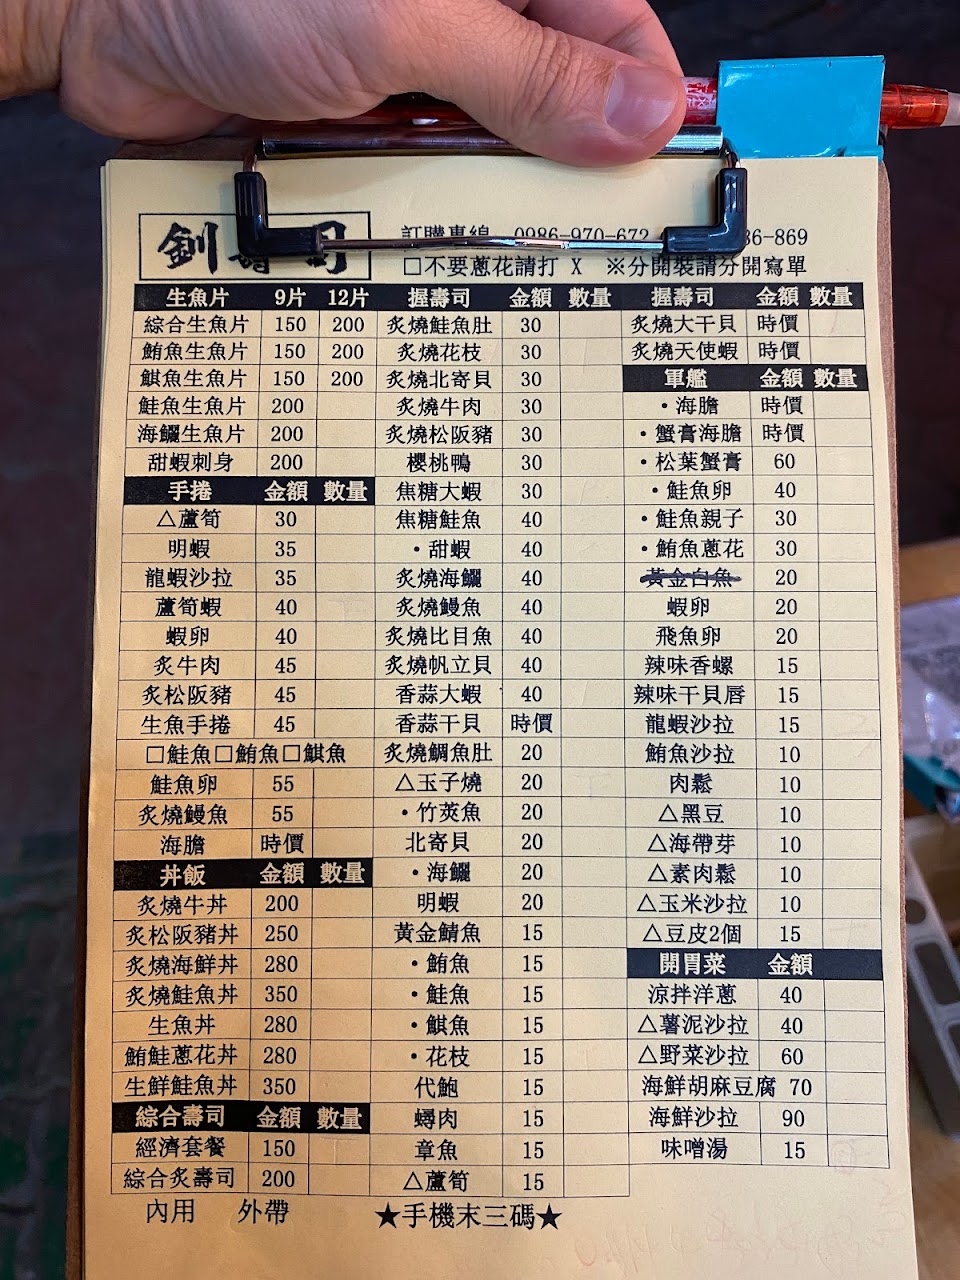 釧壽司
訂購專線 0986-970-672 36-869
□不要蔥花請打 X ※分開裝請分開寫單
生魚片 9片 12片
綜合生魚片 150 200
鮪魚生魚片 150 200
鯕魚生魚片 150 200
鮭魚生魚片 200
海鱺生魚片 200
甜蝦刺身 200
手捲 金額 數量
△蘆筍 30
明蝦 35
龍蝦沙拉 35
蘆筍蝦 40
蝦卵 40
炙牛肉 45
炙松阪豬 45
生魚手捲 45
□鮭魚□鮪魚□鯕魚
鮭魚卵 55
炙燒鰻魚 55
海膽 時價
丼飯 金額 數量
炙燒牛丼 200
炙松阪豬丼 250
炙燒海鮮丼 280
炙燒鮭魚丼 350
生魚丼 280
鮪鮭蔥花丼 280
生鮮鮭魚丼 350
綜合壽司 金額 數量
經濟套餐 150
綜合炙壽司 200
內用 外帶
握壽司 金額 數量
炙燒鮭魚肚 30
炙燒花枝 30
炙燒北寄貝 30
炙燒牛肉 30
炙燒松阪豬 30
櫻桃鴨 30
焦糖大蝦 30
焦糖鮭魚 40
・甜蝦 40
炙燒海鱺 40
炙燒鰻魚 40
炙燒比目魚 40
炙燒帆立貝 40
香蒜大蝦 40
香蒜干貝 時價
炙燒鯛魚肚 20
△玉子燒 20
・竹莢魚 20
北寄貝 20
・海鱺 20
明蝦 20
黃金鯖魚 15
・鮪魚 15
・鮭魚 15
・鯕魚 15
・花枝 15
代鮑 15
蟳肉 15
章魚 15
△蘆筍 15
★手機末三碼★
握壽司 金額 數量
炙燒大干貝 時價
炙燒天使蝦 時價
軍艦 金額 數量
・海膽 時價
・蟹膏海膽 時價
・松葉蟹膏 60
・鮭魚卵 40
・鮭魚親子 30
・鮪魚蔥花 30
黃金白魚 20
蝦卵 20
飛魚卵 20
辣味香螺 15
辣味干貝唇 15
龍蝦沙拉 15
鮪魚沙拉 10
肉鬆 10
△黑豆 10
△海帶芽 10
△素肉鬆 10
△玉米沙拉 10
△豆皮2個 15
開胃菜 金額
涼拌洋蔥 40
△薯泥沙拉 40
△野菜沙拉 60
海鮮胡麻豆腐 70
海鮮沙拉 90
味噌湯 15